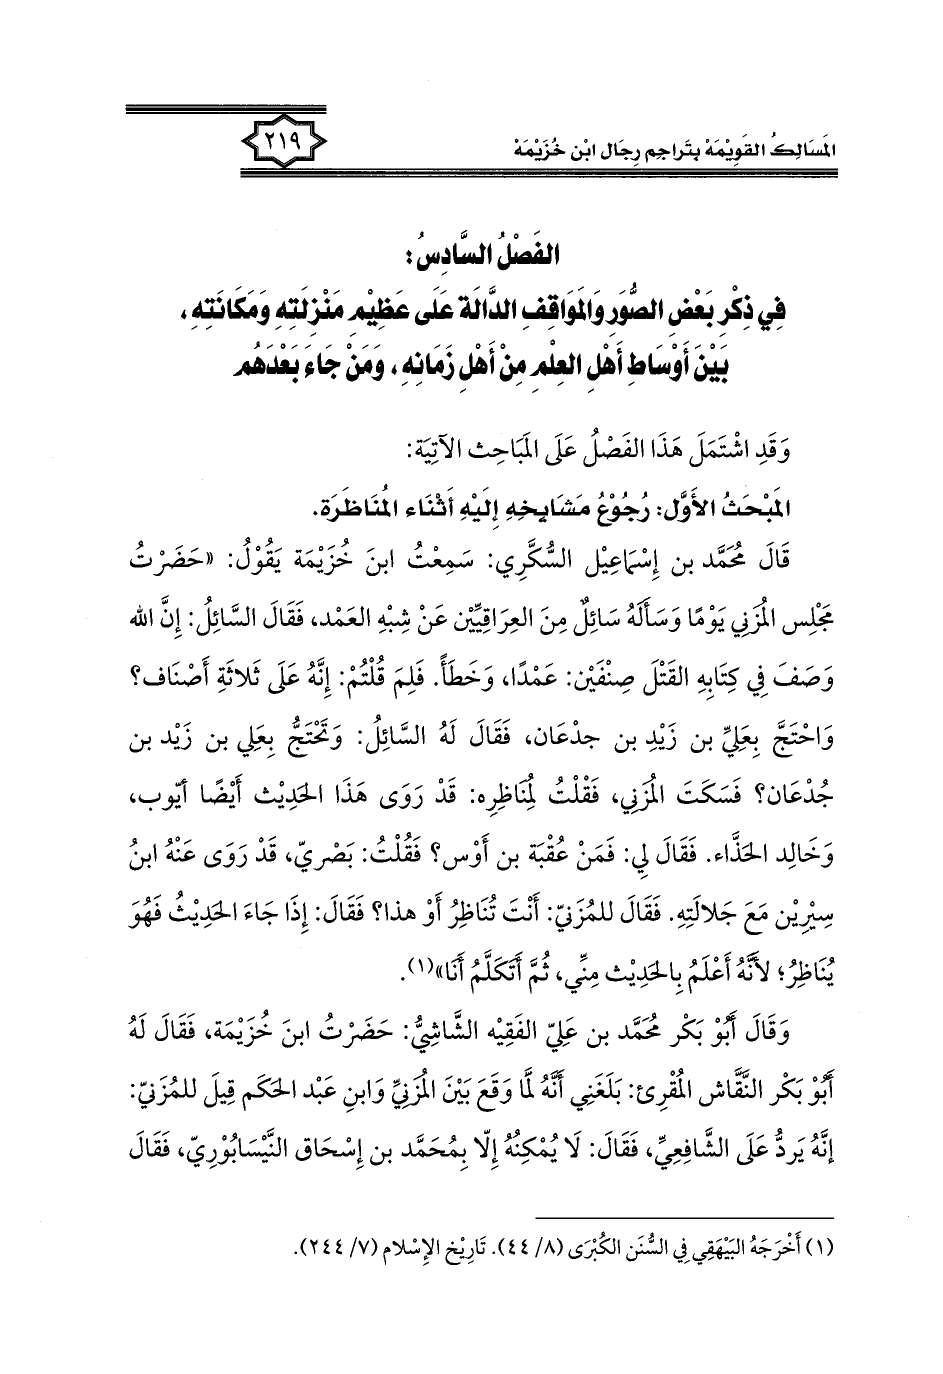 المَسَالِكُ القَوِيْمَة بتَراجم رِجَال ابْن خُزَيْمَة
٢١٩
الفَصْلُ السَّادِسُ:
فِي ذِكْرِ بَعْضِ الصُّوَرِ وَالمَوَاقِفِ الدَّالَة عَلَى عَظِيْمِ مَنْزِلَتِهِ وَمَكَانَتِهِ،
بَيْنَ أَوْسَاطِ أَهْلِ العِلْمِ مِنْ أَهْلِ زَمَانِهِ، وَمَنْ جَاءَ بَعْدَهُم
وَقَدِ اشْتَمَلَ هَذَا الفَصْلُ عَلَى المَبَاحِث الآتِيَة:
المَبْحَثُ الأَوَّل: رُجُوْعُ مَشَايخِهِ إِلَيْهِ أَثْنَاء المُنَاظَرَة.
قَالَ مُحَمَّد بن إِسْمَاعِيْل السُّكَّرِي: سَمِعْتُ ابنَ خُزَيْمَة يَقُوْلُ: «حَضَرْتُ
مَجْلِس المُزَنِي يَوْمًا وَسَأَلَهُ سَائِلٌ مِنَ العِرَاقِيِّين عَنْ شِبْهِ العَمْد، فَقَالَ السَّائِلُ: إِنَّ الله
وَصَفَ فِي كِتَابِهِ القَتْلَ صِنْفَيْن: عَمْدًا، وَخَطَأً. فَلِمَ قُلْتُمْ: إِنَّهُ عَلَى ثَلَاثَةِ أَصْنَاف؟
وَاحْتَجَّ بِعَلِيِّ بن زَيْدِ بن جدْعَان، فَقَالَ لَهُ السَّائِلُ: وَتَحْتَجُّ بِعَلِي بن زَيْد بن
جُدْعَان؟ فَسَكَتَ المُزَنِي، فَقُلْتُ لِمُنَاظِرِه: قَدْ رَوَى هَذَا الحَدِيْث أَيْضًا أَيّوب،
وَخَالِد الحَذَّاء. فَقَالَ لِي: فَمَنْ عُقْبَة بن أَوْس؟ فَقُلْتُ: بَصْرِيّ، قَدْ رَوَى عَنْهُ ابنُ
سِيْرِيْن مَعَ جَلالَتِهِ. فَقَالَ للمُزَنيّ: أَنْتَ تُنَاظِرُ أَوْ هذا؟ فَقَالَ: إِذَا جَاءَ الحَدِيْثُ فَهُوَ
يُنَاظِرُ؛ لأَنَّهُ أَعْلَمُ بِالحَدِيْث مِنِّي، ثُمَّ أَتَكَلَّمُ أَنَا»(١).
وَقَالَ أَبُوْ بَكْر مُحَمَّد بن عَلِيّ الفَقِيْه الشَّاشِيُّ: حَضَرْتُ ابنَ خُزَيْمَة، فَقَالَ لَهُ
أَبُوْ بَكْر النَّقَّاش المُقْرِئ: بَلَغَنِي أَنَّهُ لَمَّا وَقَعَ بَيْنَ المُزَنِيِّ وَابنِ عَبْد الحَكَم قِيلَ للمُزَنيّ:
إِنَّهُ يَردُّ عَلَى الشَّافِعِيِّ، فَقَالَ: لَا يُمْكِنُهُ إِلّا بِمُحَمَّد بن إِسْحَاق النَّيْسَابُوْرِيّ، فَقَالَ
(١) أَخْرَجَهُ البَيْهَقِي فِي السُّنَن الكُبْرَى (٨/ ٤٤). تَارِيْخ الإِسْلام (٧/ ٢٤٤).